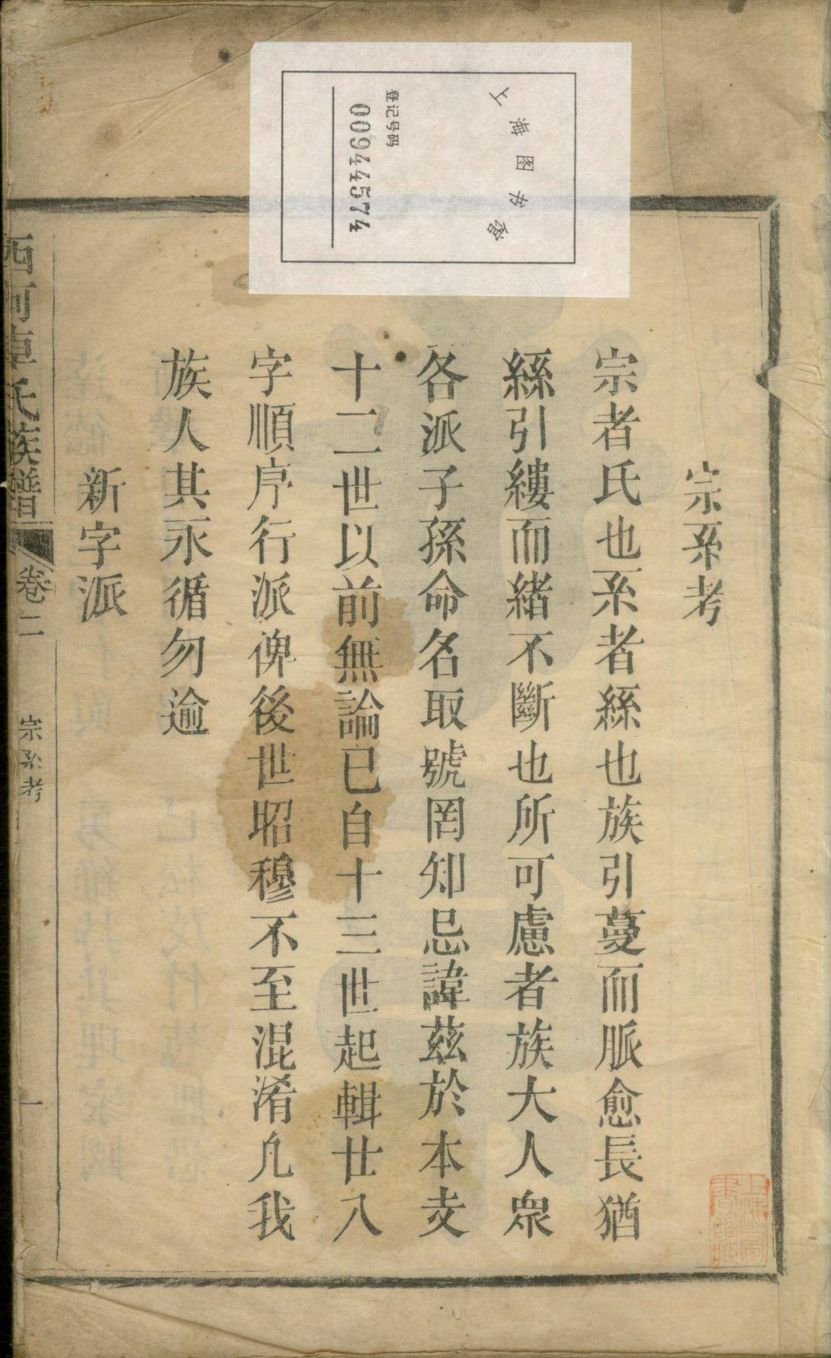 上海图书馆
登记号码
00944574
宗系考
宗者氏也系者絲也族引蔓而脈愈長猶
絲引縷而緒不斷也所可慮者族大人衆
各派子孫命名取號罔知忌諱茲於本支
十二世以前無論已自十三世起輯廿八
字順序行派俾後世昭穆不至混淆凢我
族人其永循勿逾
新字派
西河卓氏族譜
卷二
宗系考
一